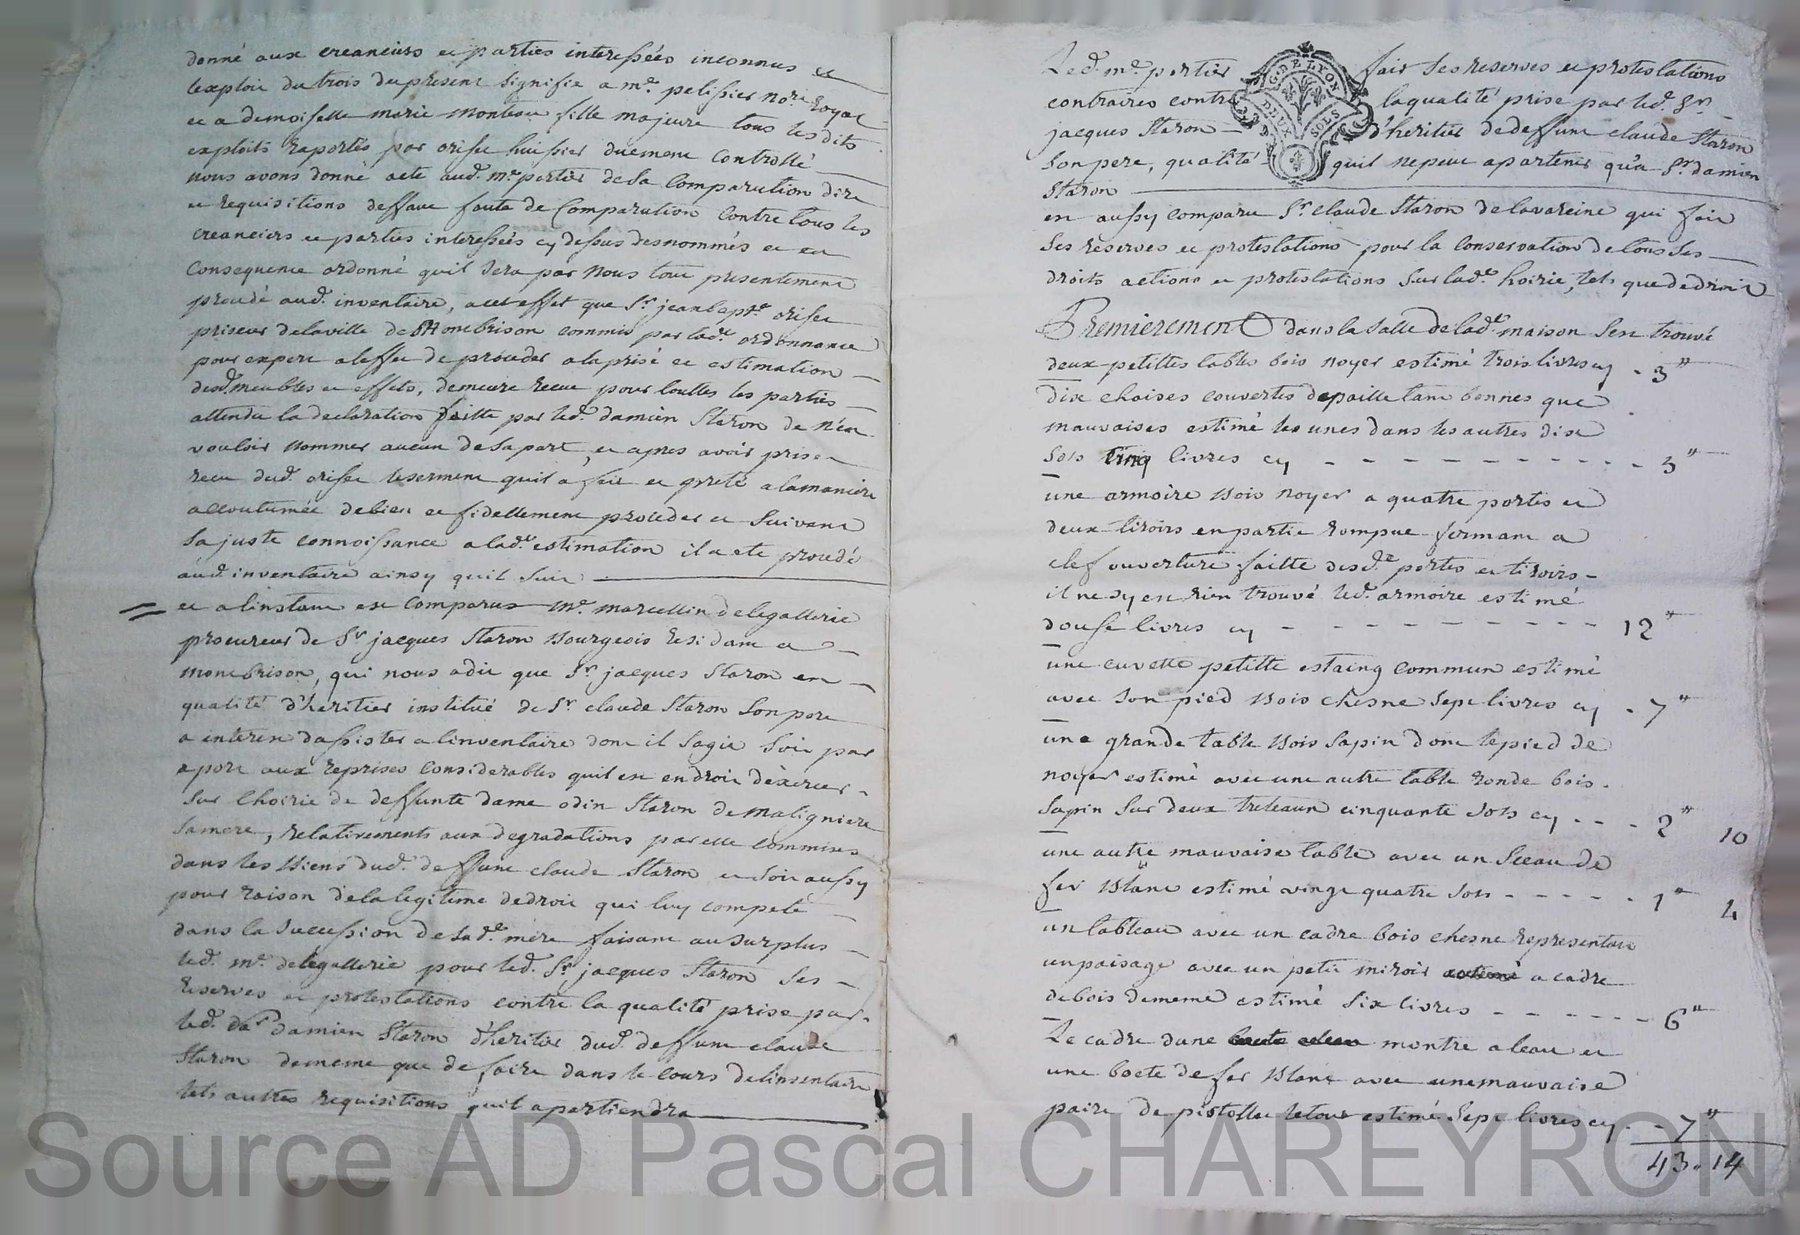 donné aux creanciers et parties interessées inconnus et
lexploit du trois du present signifié a me. pelissier nore. Royal
et a demoiselle marie monteau fille majeure tous lesdits
exploits raportés par orisse huissier duement Controllé
nous avons donné acte aud. me. portier de sa Comparution dire
et requisitions deffaut faute de Comparution Contre tous les
creanciers et parties interessées cy dessus desnommés et en
Consequence ordonné quil sera par Nous tout presentement
procedé aud. inventaire, a cet effet que Sr. jean bapte. orisse
priseur de la ville de Montbrison commis par lade. ordonnance
pour expert a leffet de proceder a la prisé et estimation
desd. meubles et effets, demeure receu pour touttes les parties
attendu la declaration faitte par led. damien Staron de n'en
vouloir nommer aucun de sa part, et apres avoir pris et
receu dud. orisse le serment quil a fait et preté a la maniere
accoutumée de bien et fidellement proceder et suivant
sa juste connoissance a lade. estimation il a eté procedé
aud. inventaire ainsy quil suit
et a linstant est Comparu me. marcellin delegallerie
procureur de Sr. jacques Staron Bourgeois Residant a
montbrison, qui nous a dit que Sr. jacques Staron en
qualité d'heritier institué de Sr. claude Staron son pere
a interet dassister a linventaire dont il sagit soit par
raport aux reprises considerables quil est en droit dèxercer
sur lhoirie de deffunte dame odin Staron de maligniere
sa mere, relativements aux degradations par elle commises
dans les Biens dud. deffunt claude Staron et soit aussy
pour raison de la legitime de droit qui luy compete
dans la succession de sade. mère faisant au surplus
led. me. delegallerie pour led. Sr. jacques Staron ses
reserves et protestations contre la qualité prise par
led. damien Staron d'heritier dud. deffunt claude
Staron de meme que de faire dans le cours de linventaire
tels autres requisitions quil apartiendra
Led. me. portier fait ses reserves et protestations
G. DE LYON
DEUX SOLS
contraires contre la qualité prise par led. Sr.
jacques Staron d'heritier de deffunt claude Staron
son pere, qualité quil ne peut apartenir qu'a Sr. damien
Staron
en aussy comparu Sr. claude Staron de lavareine qui fait
ses reserves et protestations pour la conservation de tous ses
droits actions et protestations sur lade. hoirie, tels que de droit
Premierement dans la salle de lade. maison sen trouvé
deux petittes tables bois noyer estimé trois livres cy - 3"
Dix chaises couvertes de paille tant bonnes que
mauvaises estimé les unes dans les autres dix
sols cinq livres cy - - - - - - - - - - 5"
une armoire Bois noyer a quatre portes et
deux tiroirs en partie rompue fermant a
clef ouverture faitte desde. portes et tiroirs
il ne sy est rien trouvé led. armoire estimé
douse livres cy - - - - - - - - - 12"
une cuvette petitte estaing commun estimé
avec son pied Bois chesne sept livres cy - 7"
une grande table Bois sapin dont le pied de
noyer estimé avec une autre table ronde bois
sapin sur deux treteaux cinquante sols cy - - - 2" 10
une autre mauvaise table avec un sceau de
fer Blanc estimé vingt quatre sols - - - - - 1" 4
un tableau avec un cadre bois chesne representant
un paisage avec un petit miroir a cadre
de bois de meme estimé six livres - - - - - - 6"
Le cadre dune montre a leau et
une boete de fer Blanc avec une mauvaise
paire de pistollet le tout estimé sept livres cy - - 7"
43. 14
Source AD Pascal CHAREYRON